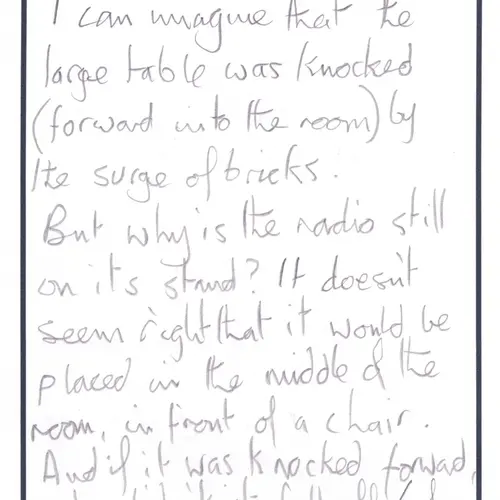 I can imagine that the
large table was knocked
(forward into the room) by
the surge of bricks.
But why is the radio still
on its stand? It doesn't
seem right that it would be
placed in the middle of the
room, in front of a chair.
And if it was knocked forward,